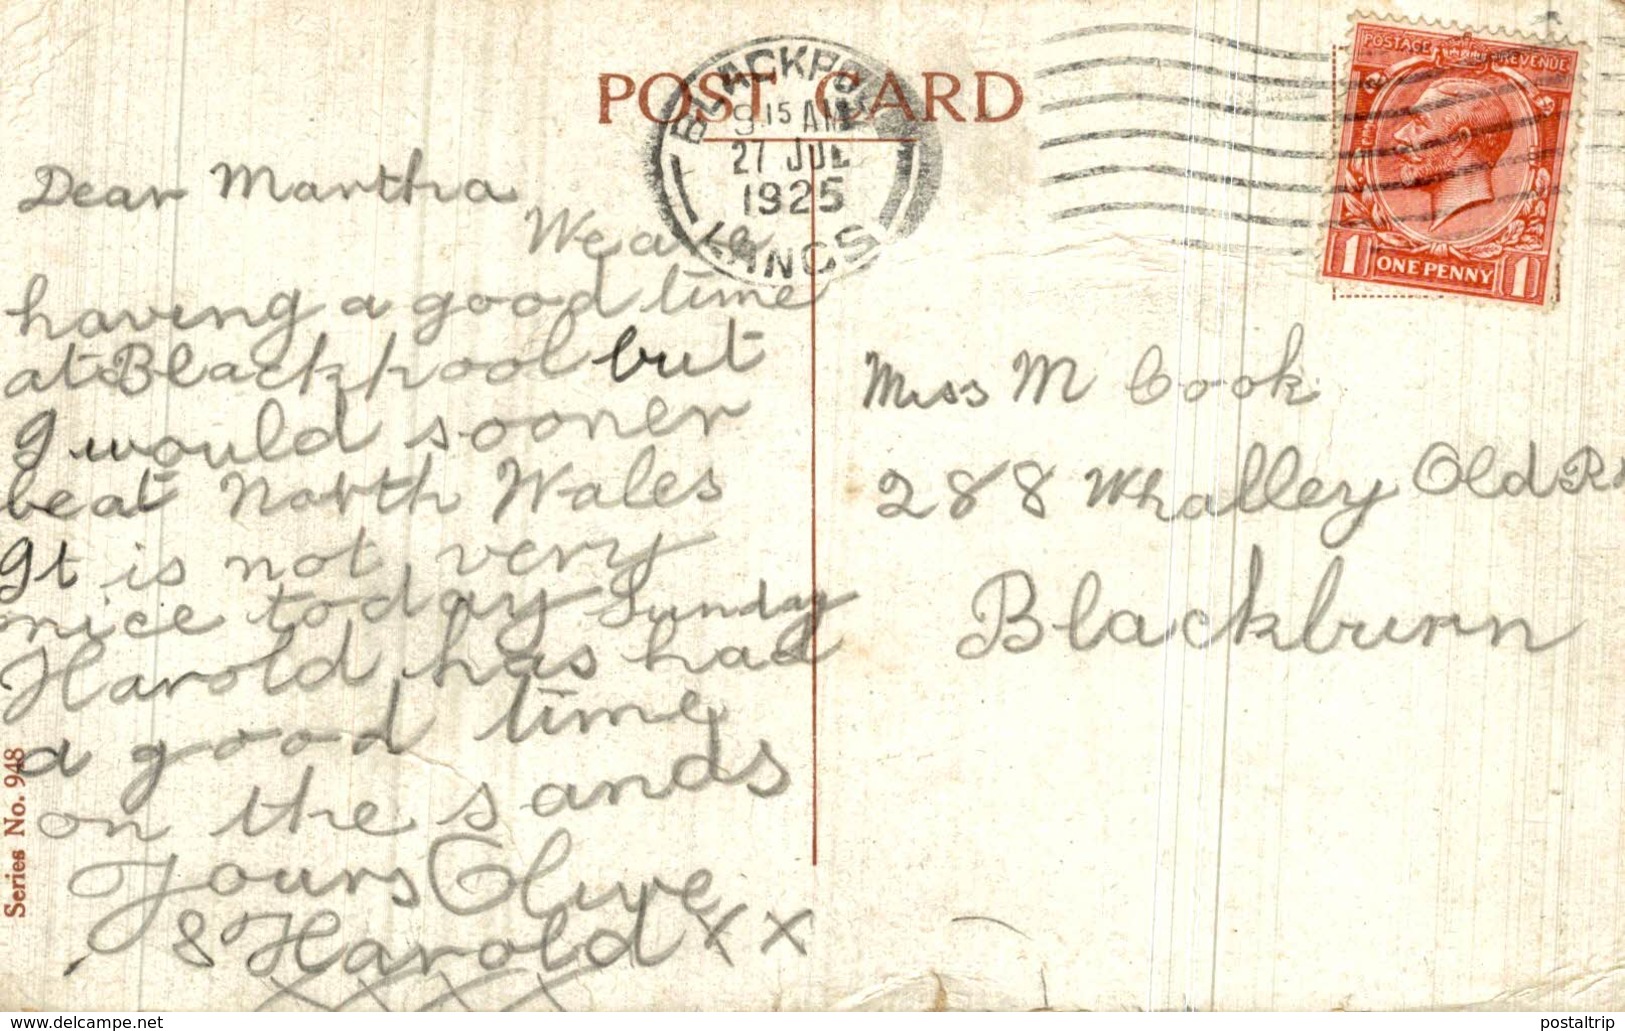 POST CARD
BLACKPOOL
9 15 AM
27 JUL
1925
LANCS
POSTAGE REVENUE
1 ONE PENNY 1
Dear Martha
We are
having a good time
at Blackpool but
I would sooner
beat North Wales
It is not very
nice today Sunday
Harold has had
a good time
on the sands
Yours Olive
& Harold x x
x x x x
Miss M Cook
288 Whalley Old Rd
Blackburn
Series No. 948
www.delcampe.net
postaltrip